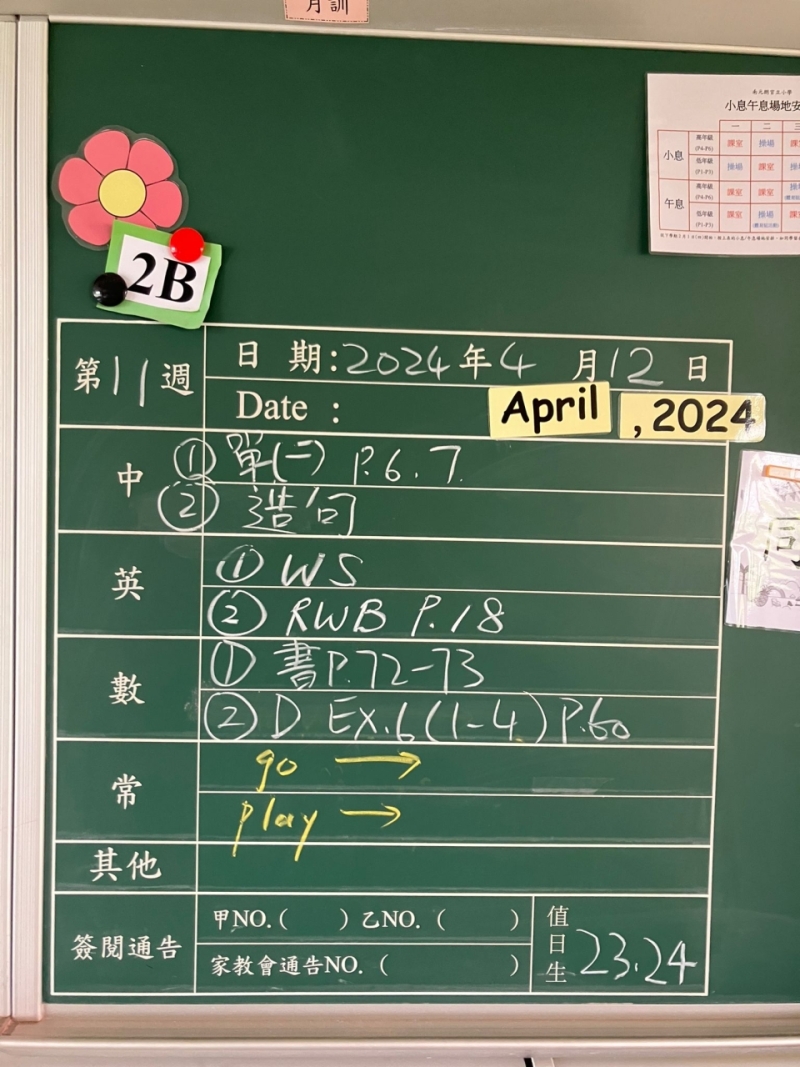 月訓
小息午息場地安
一 二 三
小息 高年級 (P4-P6) 課室 操場 課
低年級 (P1-P3) 操場 課室 操
午息 高年級 (P4-P6) 課室 課室 操
低年級 (P1-P3) 課室 操場 課
2B
第11週
日 期:2024年4月12日
Date : April , 2024
中 ① 單(一) P.6.7.
② 造句
英 ① WS
② RWB P.18
數 ① 書P.72-73
② D EX.6(1-4) P.60
常 go →
play →
其他
簽閱通告 甲NO.( ) 乙NO. ( )
家教會通告NO. ( )
值日生 23.24